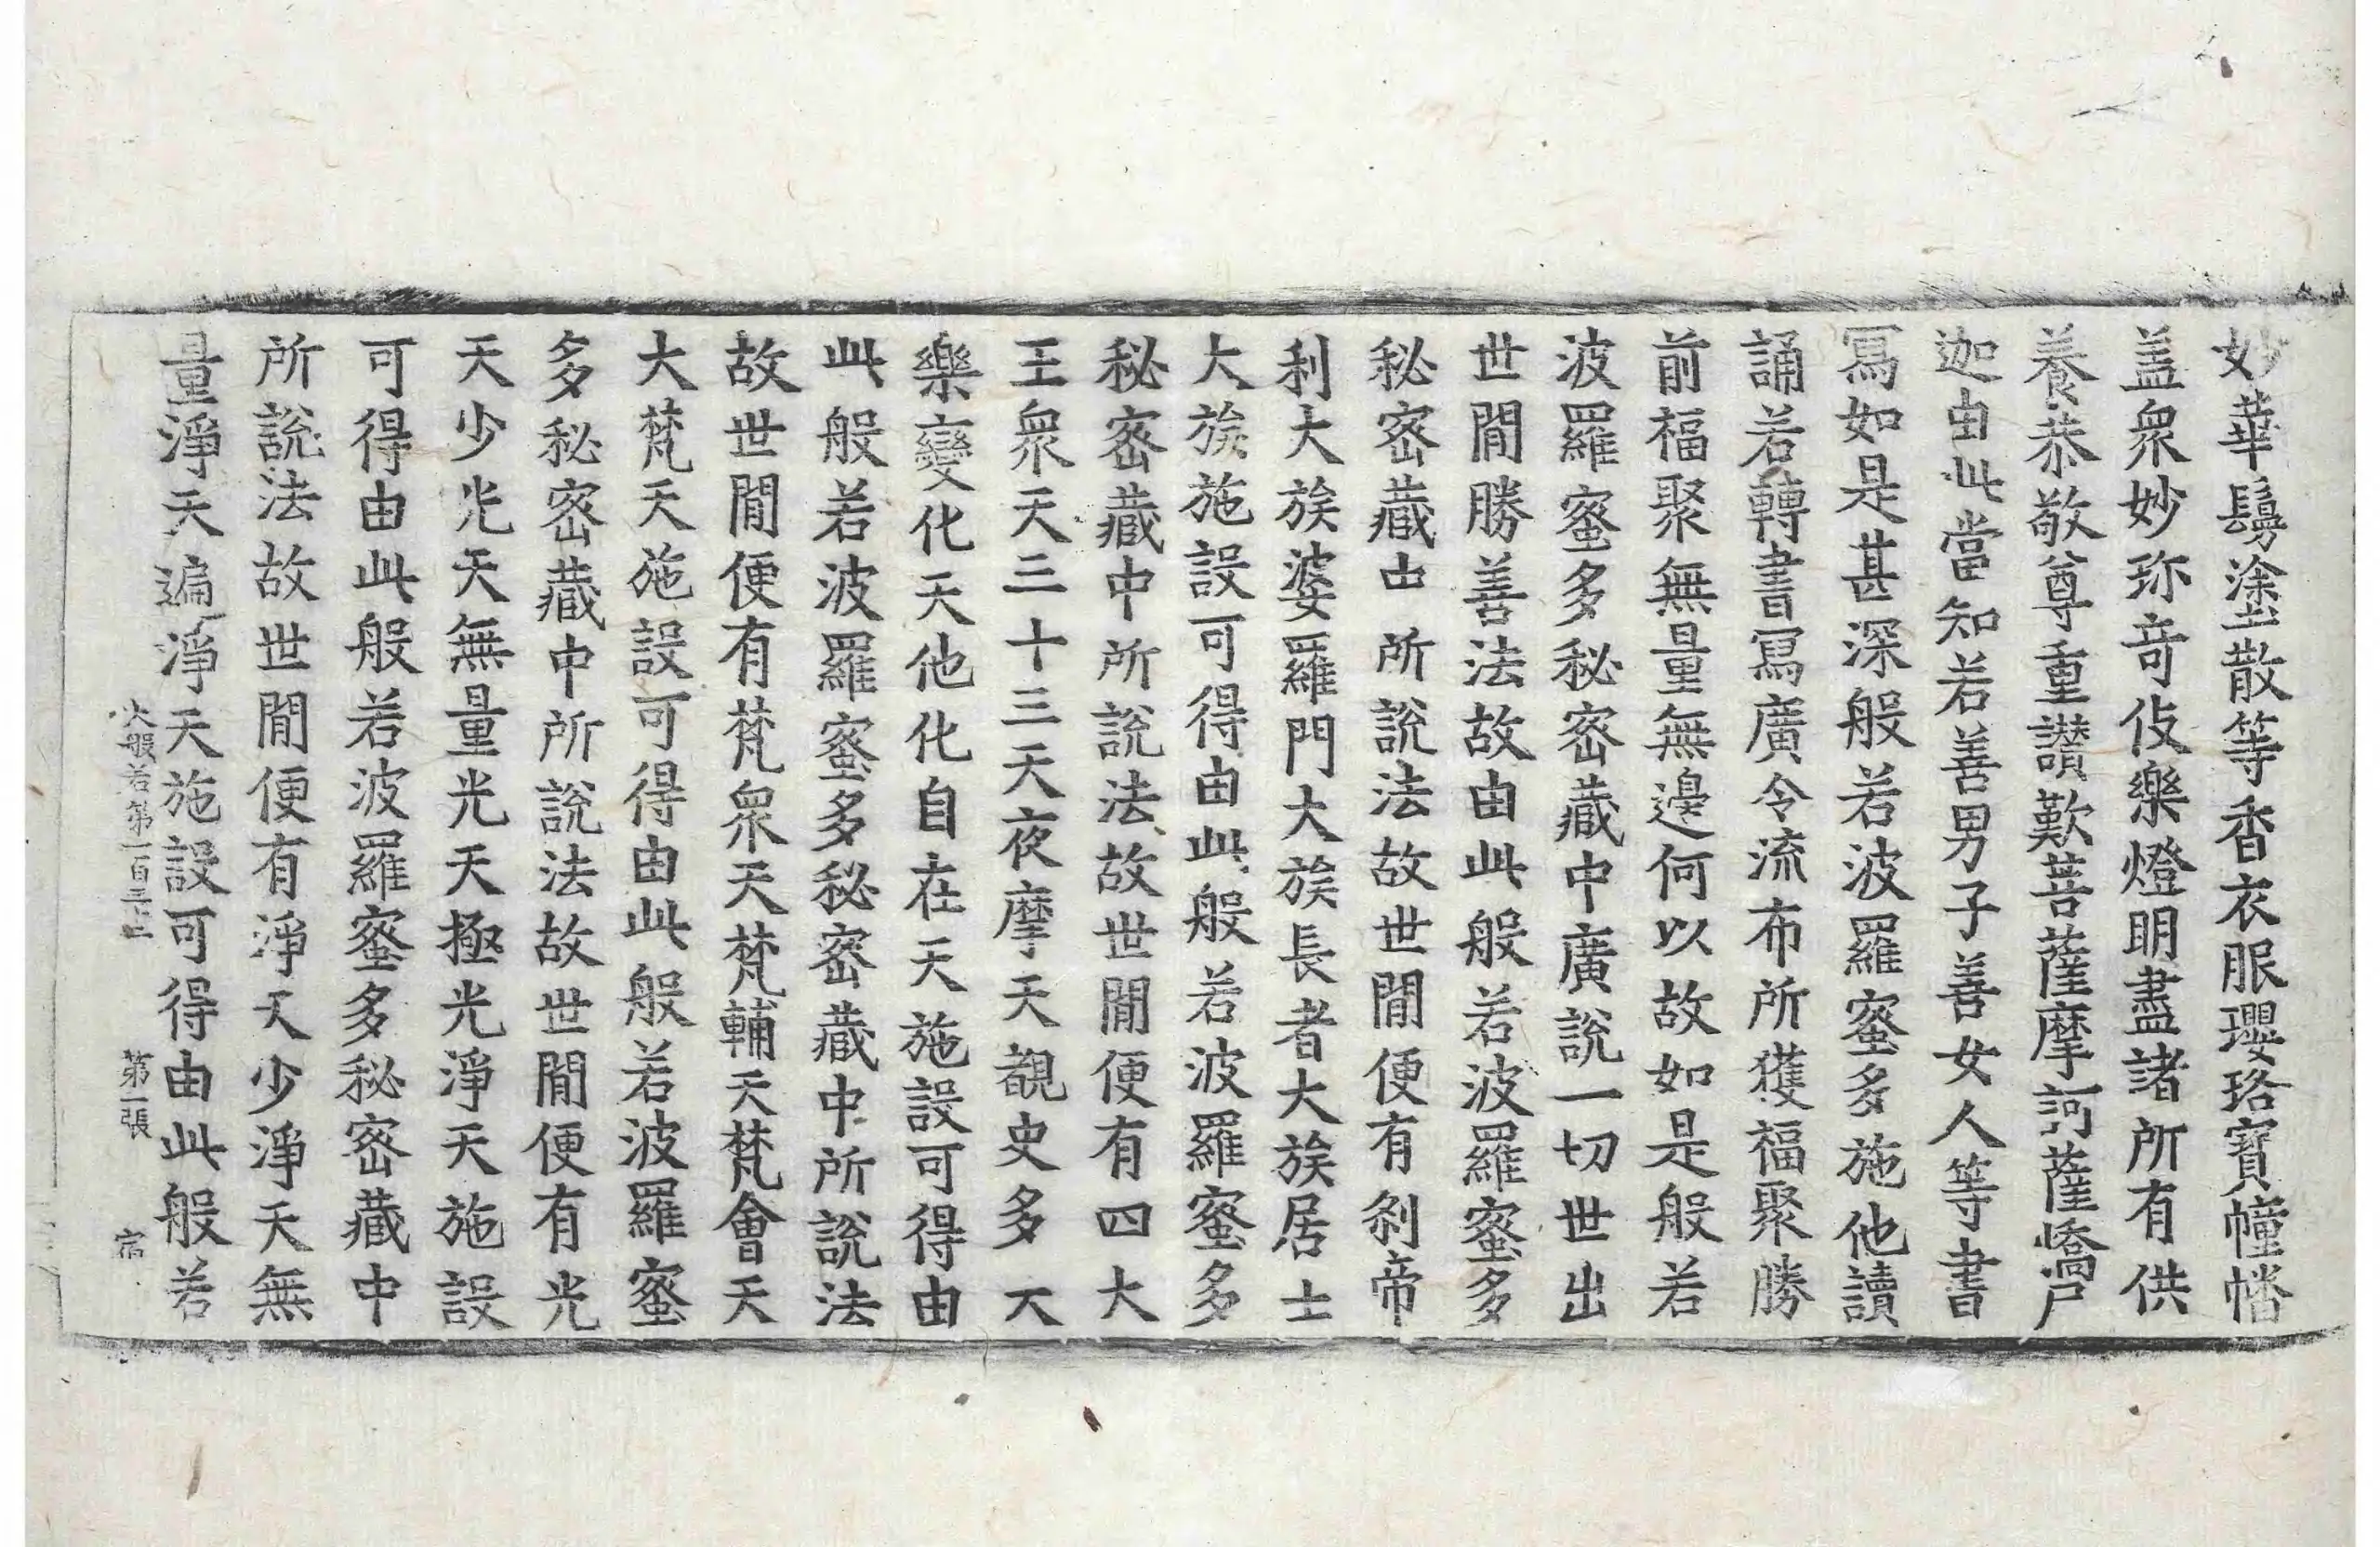 妙華鬘塗散等香衣服瓔珞寶幢幡
盖衆妙珎竒伎樂燈明盡諸所有供
養恭敬尊重讃歎菩薩摩訶薩憍尸
迦由此當知若善男子善女人等書
寫如是甚深般若波羅蜜多施他讀
誦若轉書寫廣令流布所獲福聚勝
前福聚無量無邊何以故如是般若
波羅蜜多秘密藏中廣說一切世出
世閒勝善法故由此般若波羅蜜多
秘密藏中所說法故世閒便有刹帝
利大族婆羅門大族長者大族居士
大族施設可得由此般若波羅蜜多
秘密藏中所說法故世閒便有四大
王衆天三十三天夜摩天覩史多天
樂變化天他化自在天施設可得由
此般若波羅蜜多秘密藏中所說法
故世閒便有梵衆天梵輔天梵會天
大梵天施設可得由此般若波羅蜜
多秘密藏中所說法故世閒便有光
天少光天無量光天極光淨天施設
可得由此般若波羅蜜多秘密藏中
所說法故世閒便有淨天少淨天無
量淨天遍淨天施設可得由此般若
大般若第一百三十 第二張 宿